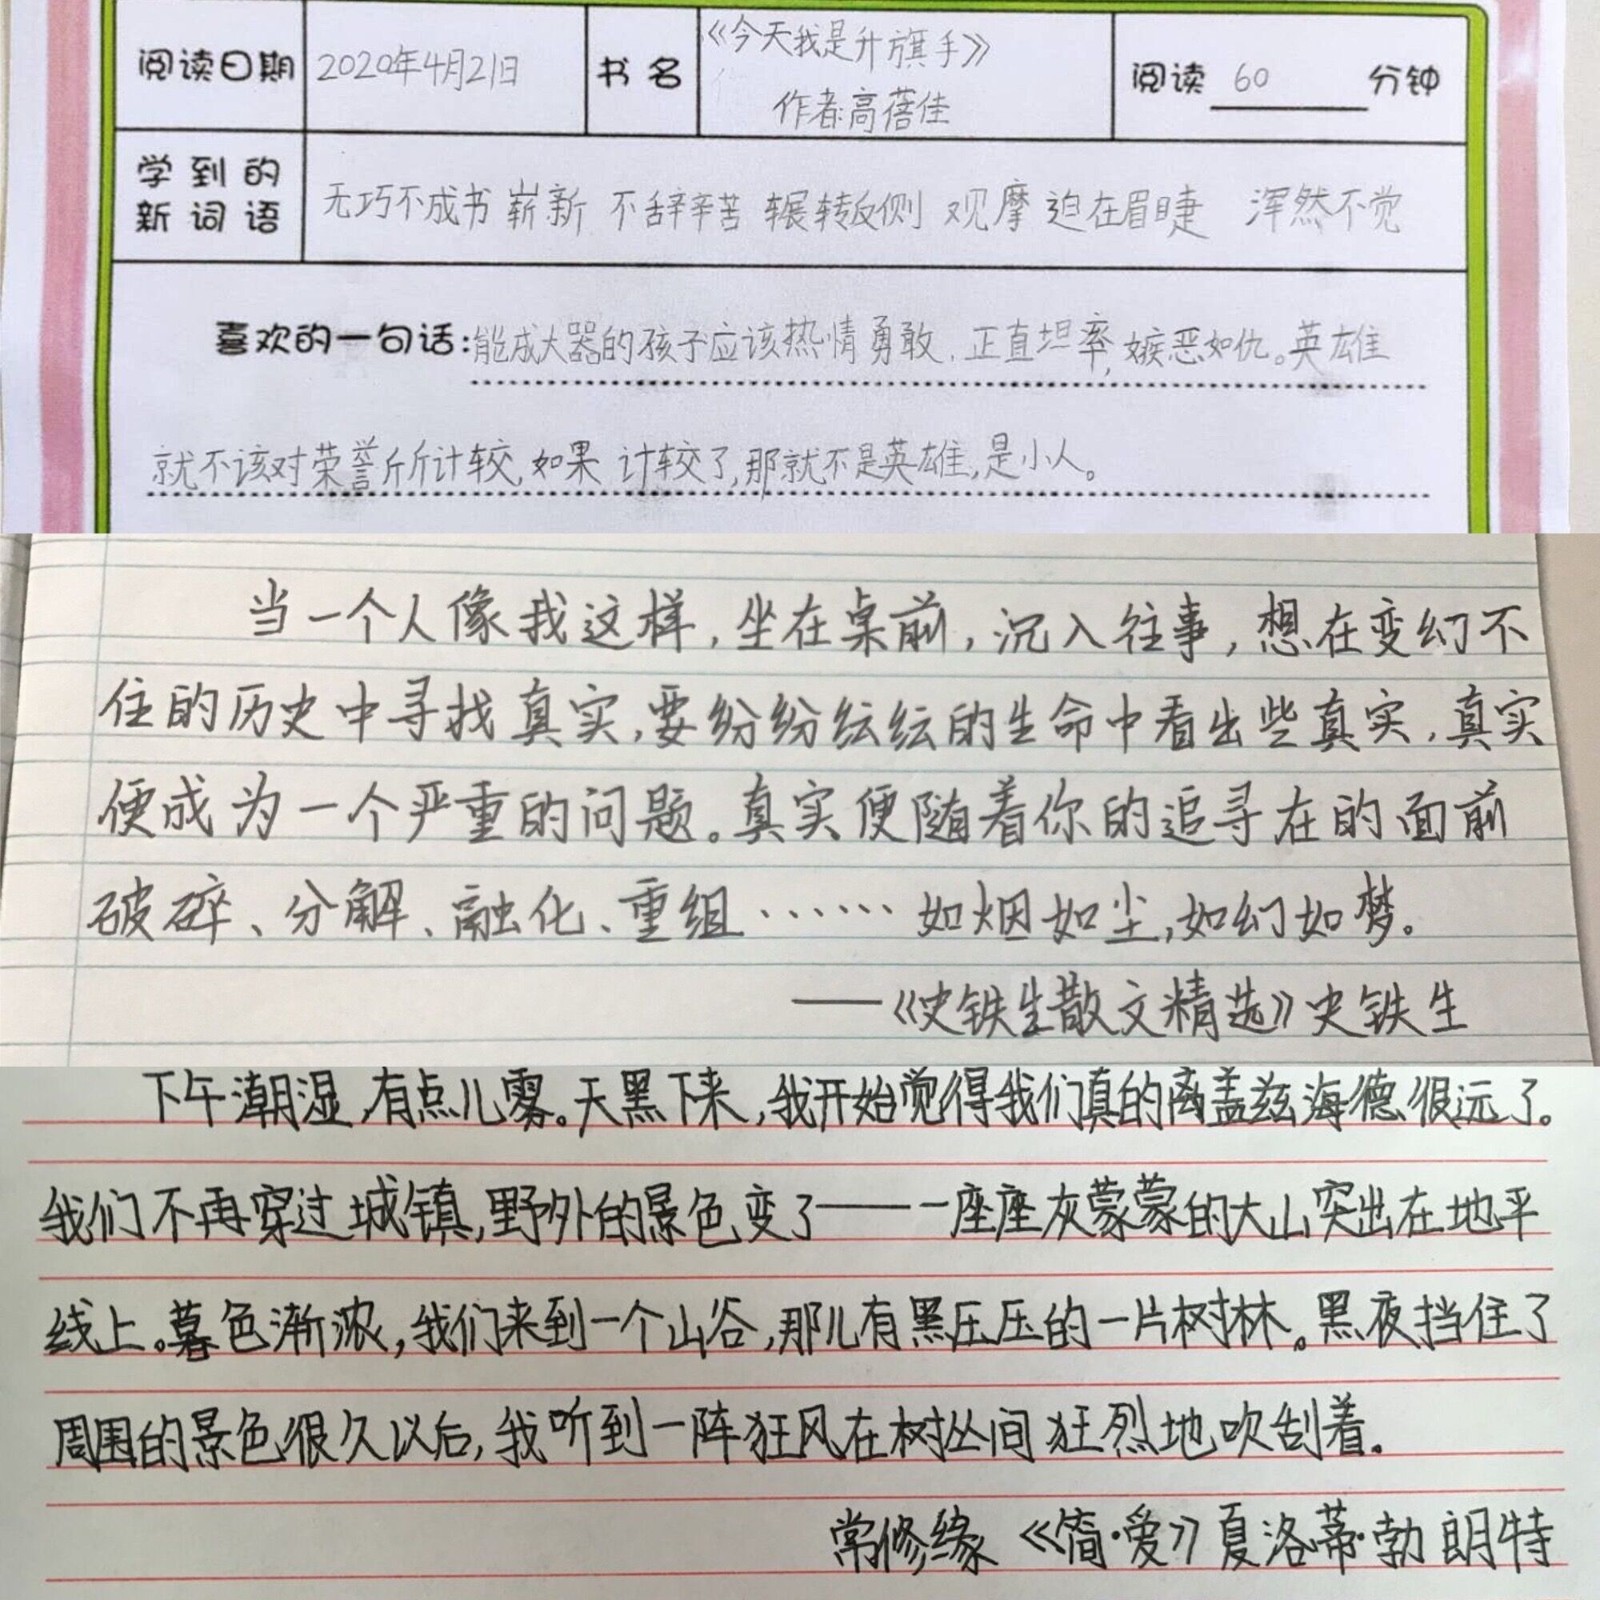 阅读日期 2020年4月21日 书名 《今天我是升旗手》 作者:高蓓佳 阅读 60 分钟
学到的新词语 无巧不成书 崭新 不辞辛苦 辗转反侧 观摩 迫在眉睫 浑然不觉
喜欢的一句话:能成大器的孩子应该热情勇敢,正直坦率,嫉恶如仇。英雄
就不该对荣誉斤斤计较,如果计较了,那就不是英雄,是小人。
当一个人像我这样,坐在桌前,沉入往事,想在变幻不
住的历史中寻找真实,要纷纷纭纭的生命中看出些真实,真实
便成为一个严重的问题。真实便随着你的追寻在的面前
破碎、分解、融化、重组……如烟如尘,如幻如梦。
——《史铁生散文精选》史铁生
下午潮湿,有点儿雾。天黑下来,我开始觉得我们真的离盖兹海德很远了。
我们不再穿过城镇,野外的景色变了——一座座灰蒙蒙的大山突出在地平
线上。暮色渐浓,我们来到一个山谷,那儿有黑压压的一片树林。黑夜挡住了
周围的景色很久以后,我听到一阵狂风在树丛间狂烈地吹刮着。
常修缘 《简·爱》夏洛蒂·勃朗特